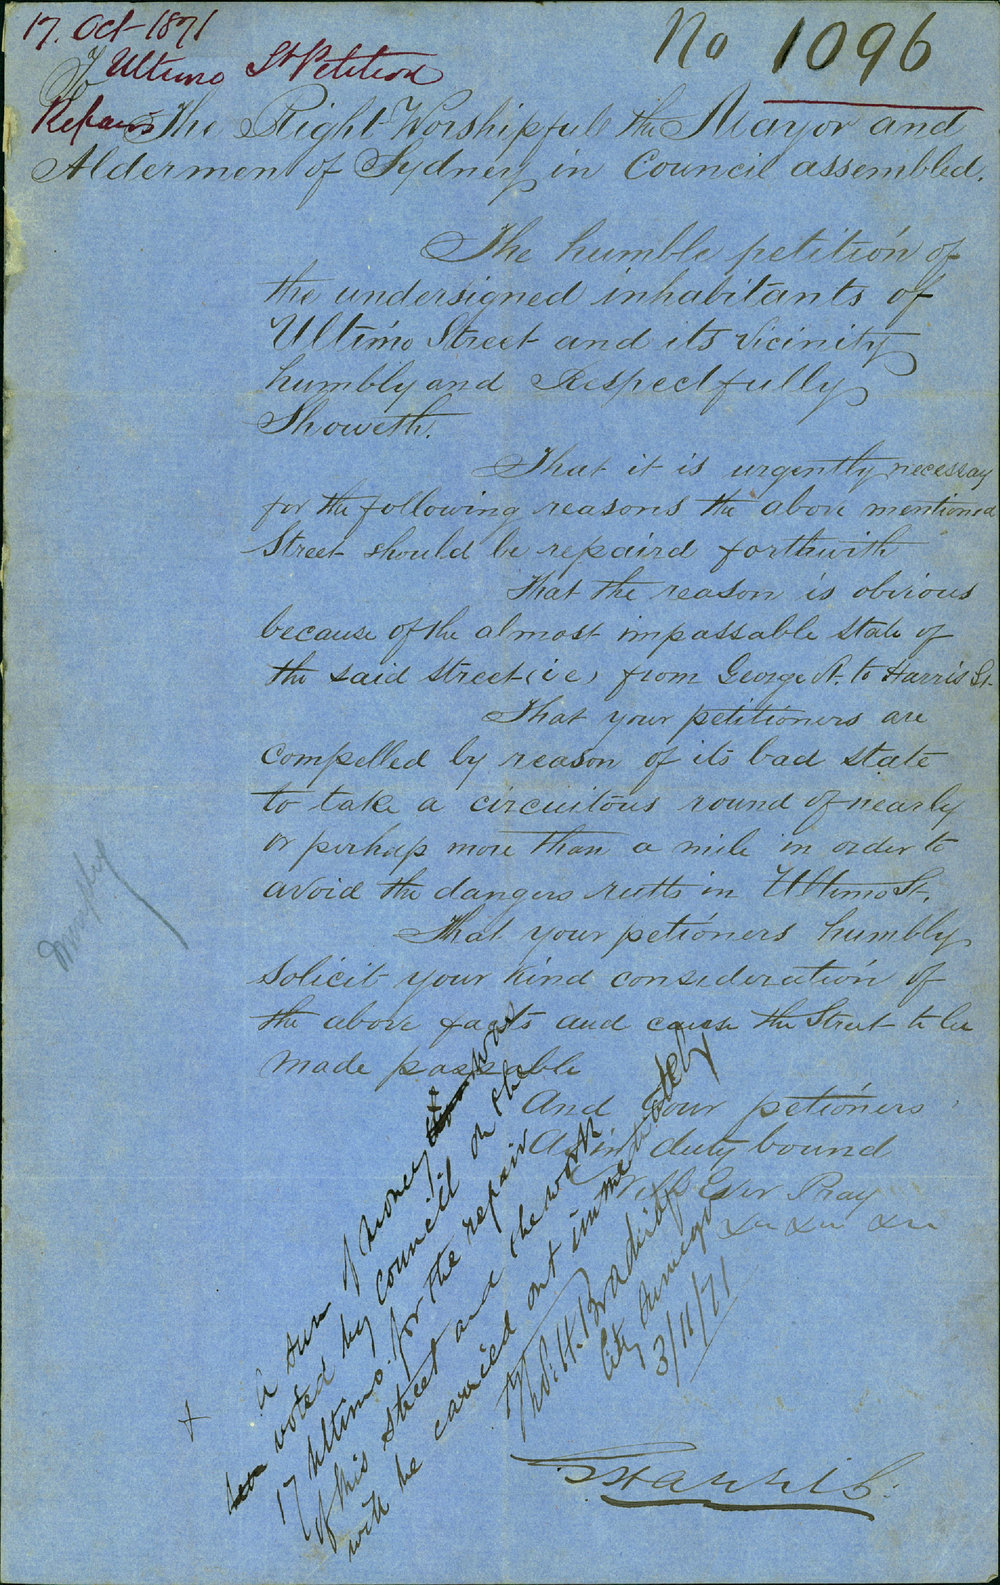 17. Oct 1871
No 1096
Ultimo St Petition
Repairs
To
The Right Worshipfull the Mayor and
Aldermen of Sydney in Council assembled.
The humble petition of
the undersigned inhabitants of
Ultimo Street and its vicinity
humbly and Respectfully
Showeth.
That it is urgently necessay
for the following reasons the above mentioned
Street should be repaird forthwith
That the reason is obvious
because of the almost impassable state of
the said street (i e) from George St. to Harris St.
That your petitioners are
compelled by reason of its bad state
to take a circuitous round of nearly
or perhaps more than a mile in order to
avoid the dangers rutts in Ultimo St.
That your petioners humbly
solicit your kind consideration of
the above facts and cause the Street to be
made passable
And your petioners
As in duty bound
Will Ever Pray
&c &c &c
Murphy
+ A sum of money was
voted by council on the
17 Ultimo for the repair
of this street and the work
will be carried out immediately
City Surveyor
3/11/71
Harris